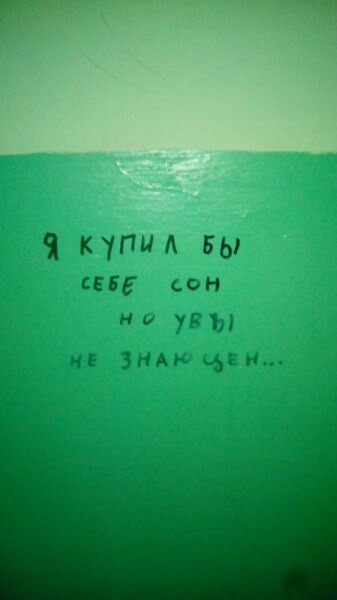 Я КУПИЛ БЫ
СЕБЕ СОН
НО УВЫ
НЕ ЗНАЮ ЦЕН...